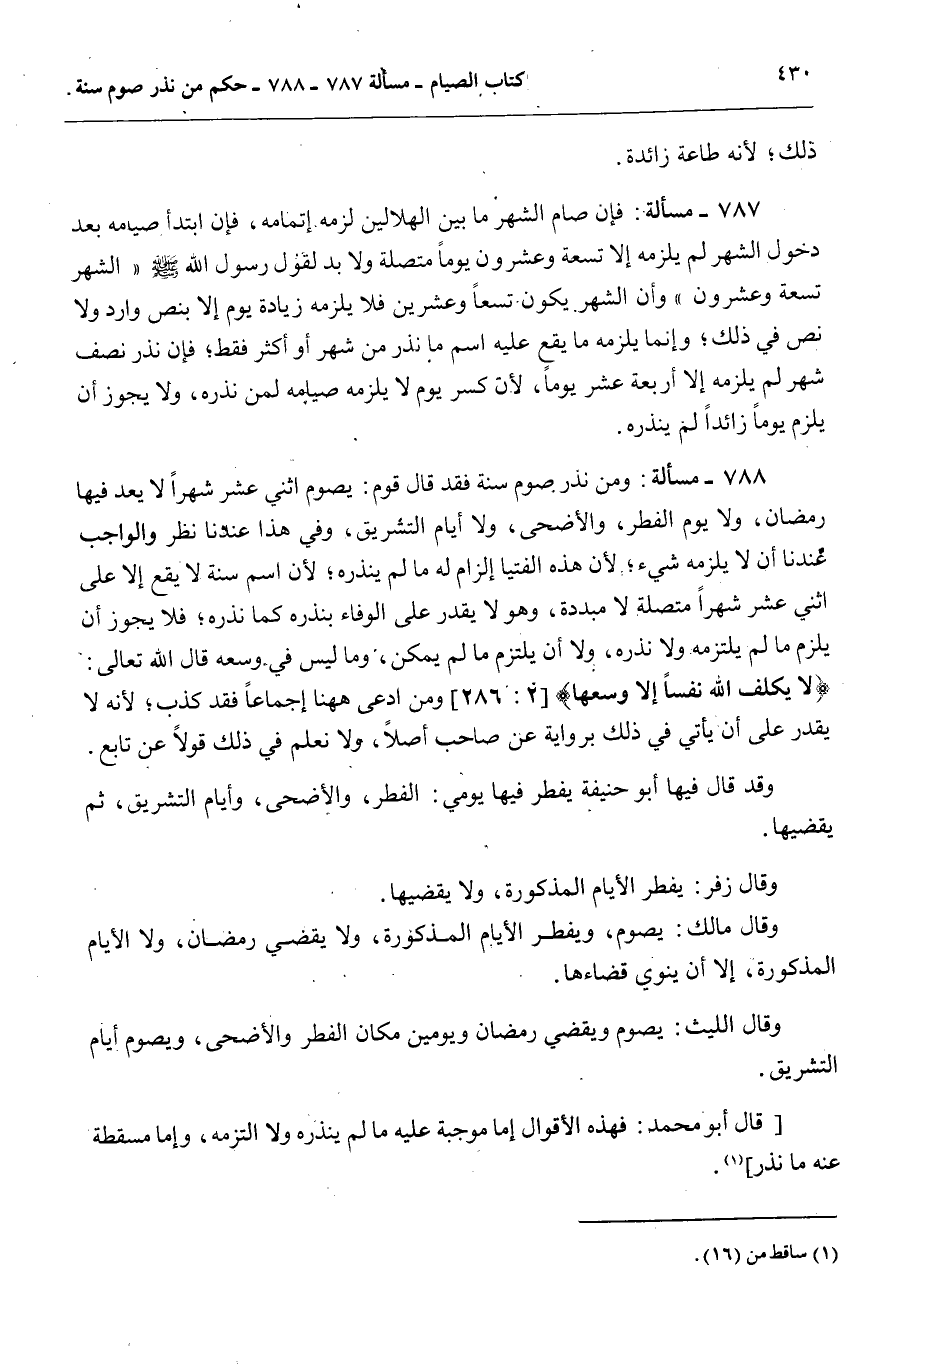 ٤٣٠
كتاب الصيام ـ مسألة ٧٨٧ ـ ٧٨٨ ـ حكم من نذر صوم سنة .
ذلك؛ لأنه طاعة زائدة .
٧٨٧ ـ مسألة: فإن صام الشهر ما بين الهلالين لزمه إتمامه، فإن ابتدأ صيامه بعد
دخول الشهر لم يلزمه إلا تسعة وعشرون يوماً متصلة ولا بد لقول رسول الله ﷺ « الشهر
تسعة وعشرون » وأن الشهر يكون تسعاً وعشرين فلا يلزمه زيادة يوم إلا بنص وارد ولا
نص في ذلك؛ وإنما يلزمه ما يقع عليه اسم ما نذر من شهر أو أكثر فقط؛ فإن نذر نصف
شهر لم يلزمه إلا أربعة عشر يوماً، لأن كسر يوم لا يلزمه صيامه لمن نذره، ولا يجوز أن
يلزم يوماً زائداً لم ينذره.
٧٨٨ ـ مسألة: ومن نذر صوم سنة فقد قال قوم: يصوم اثني عشر شهراً لا يعد فيها
رمضان، ولا يوم الفطر، والأضحى، ولا أيام التشريق، وفي هذا عندنا نظر والواجب
عندنا أن لا يلزمه شيء؛ لأن هذه الفتيا إلزام له ما لم ينذره؛ لأن اسم سنة لا يقع إلا على
اثني عشر شهراً متصلة لا مبددة، وهو لا يقدر على الوفاء بنذره كما نذره؛ فلا يجوز أن
يلزم ما لم يلتزمه ولا نذره، ولا أن يلتزم ما لم يمكن، وما ليس في وسعه قال الله تعالى:
﴿لا يكلف الله نفساً إلا وسعها﴾ [٢ : ٢٨٦] ومن ادعى ههنا إجماعاً فقد كذب؛ لأنه لا
يقدر على أن يأتي في ذلك برواية عن صاحب أصلاً، ولا نعلم في ذلك قولاً عن تابع.
وقد قال فيها أبو حنيفة يفطر فيها يومي: الفطر، والأضحى، وأيام التشريق، ثم
يقضيها.
وقال زفر: يفطر الأيام المذكورة، ولا يقضيها.
وقال مالك: يصوم، ويفطر الأيام المذكورة، ولا يقضي رمضان، ولا الأيام
المذكورة، إلا أن ينوي قضاءها.
وقال الليث: يصوم ويقضي رمضان ويومين مكان الفطر والأضحى، ويصوم أيام
التشريق.
[ قال أبو محمد: فهذه الأقوال إما موجبة عليه ما لم ينذره ولا التزمه، وإما مسقطة
عنه ما نذر](١).
(١) ساقط من (١٦).